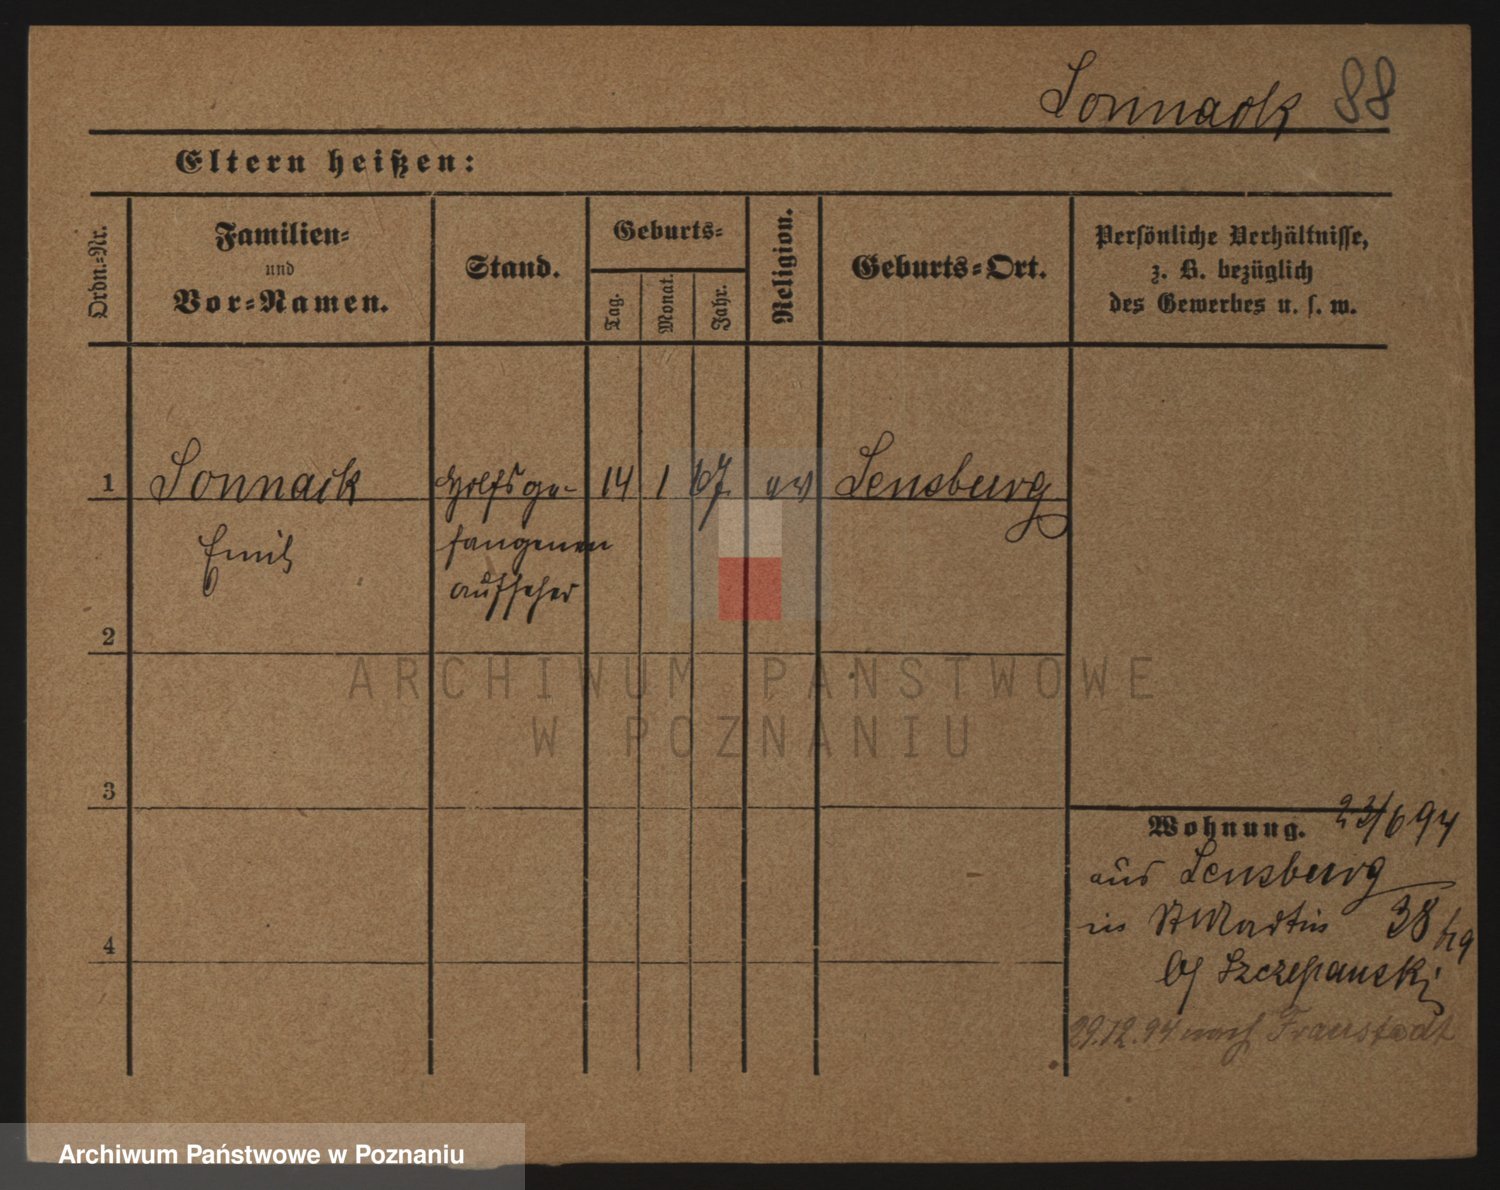 Sonnack 88
Eltern heißen:
Ordn.-Nr.
Familien-
und
Vor-Namen.
Stand.
Geburts-
Tag.
Monat.
Jahr.
Religion.
Geburts-Ort.
Persönliche Verhältnisse,
z. B. bezüglich
des Gewerbes u. s. w.
1 Sonnack Hülfsge- 14 1 67 ev Sensburg
Emil fangenen
aufseher
2
ARCHIWUM PAŃSTWOWE
W POZNANIU
3
Wohnung. 23/6 94
aus Sensburg
in St Martin 38
bei Szczepanski
4
29.12.94 nach Fraustadt
Archiwum Państwowe w Poznaniu